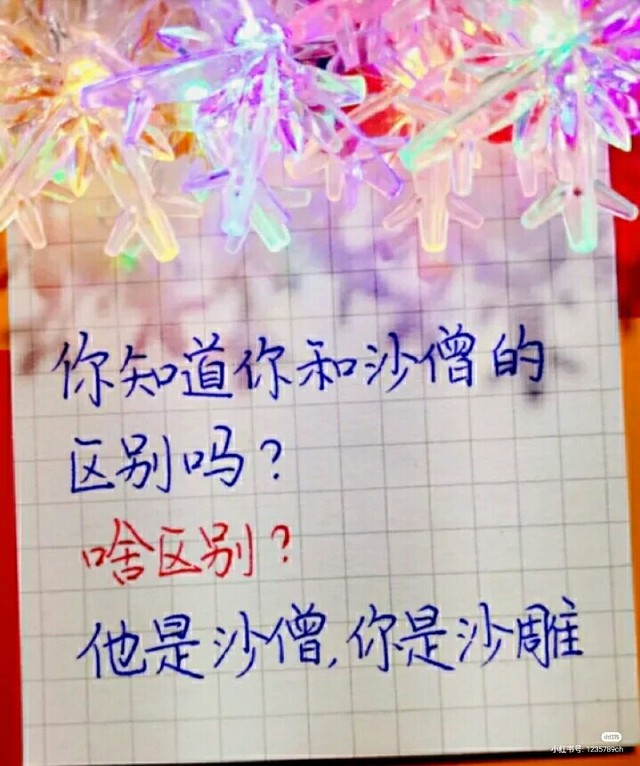 你知道你和沙僧的
区别吗？
啥区别？
他是沙僧,你是沙雕
小红书
小红书号: 1235789ch